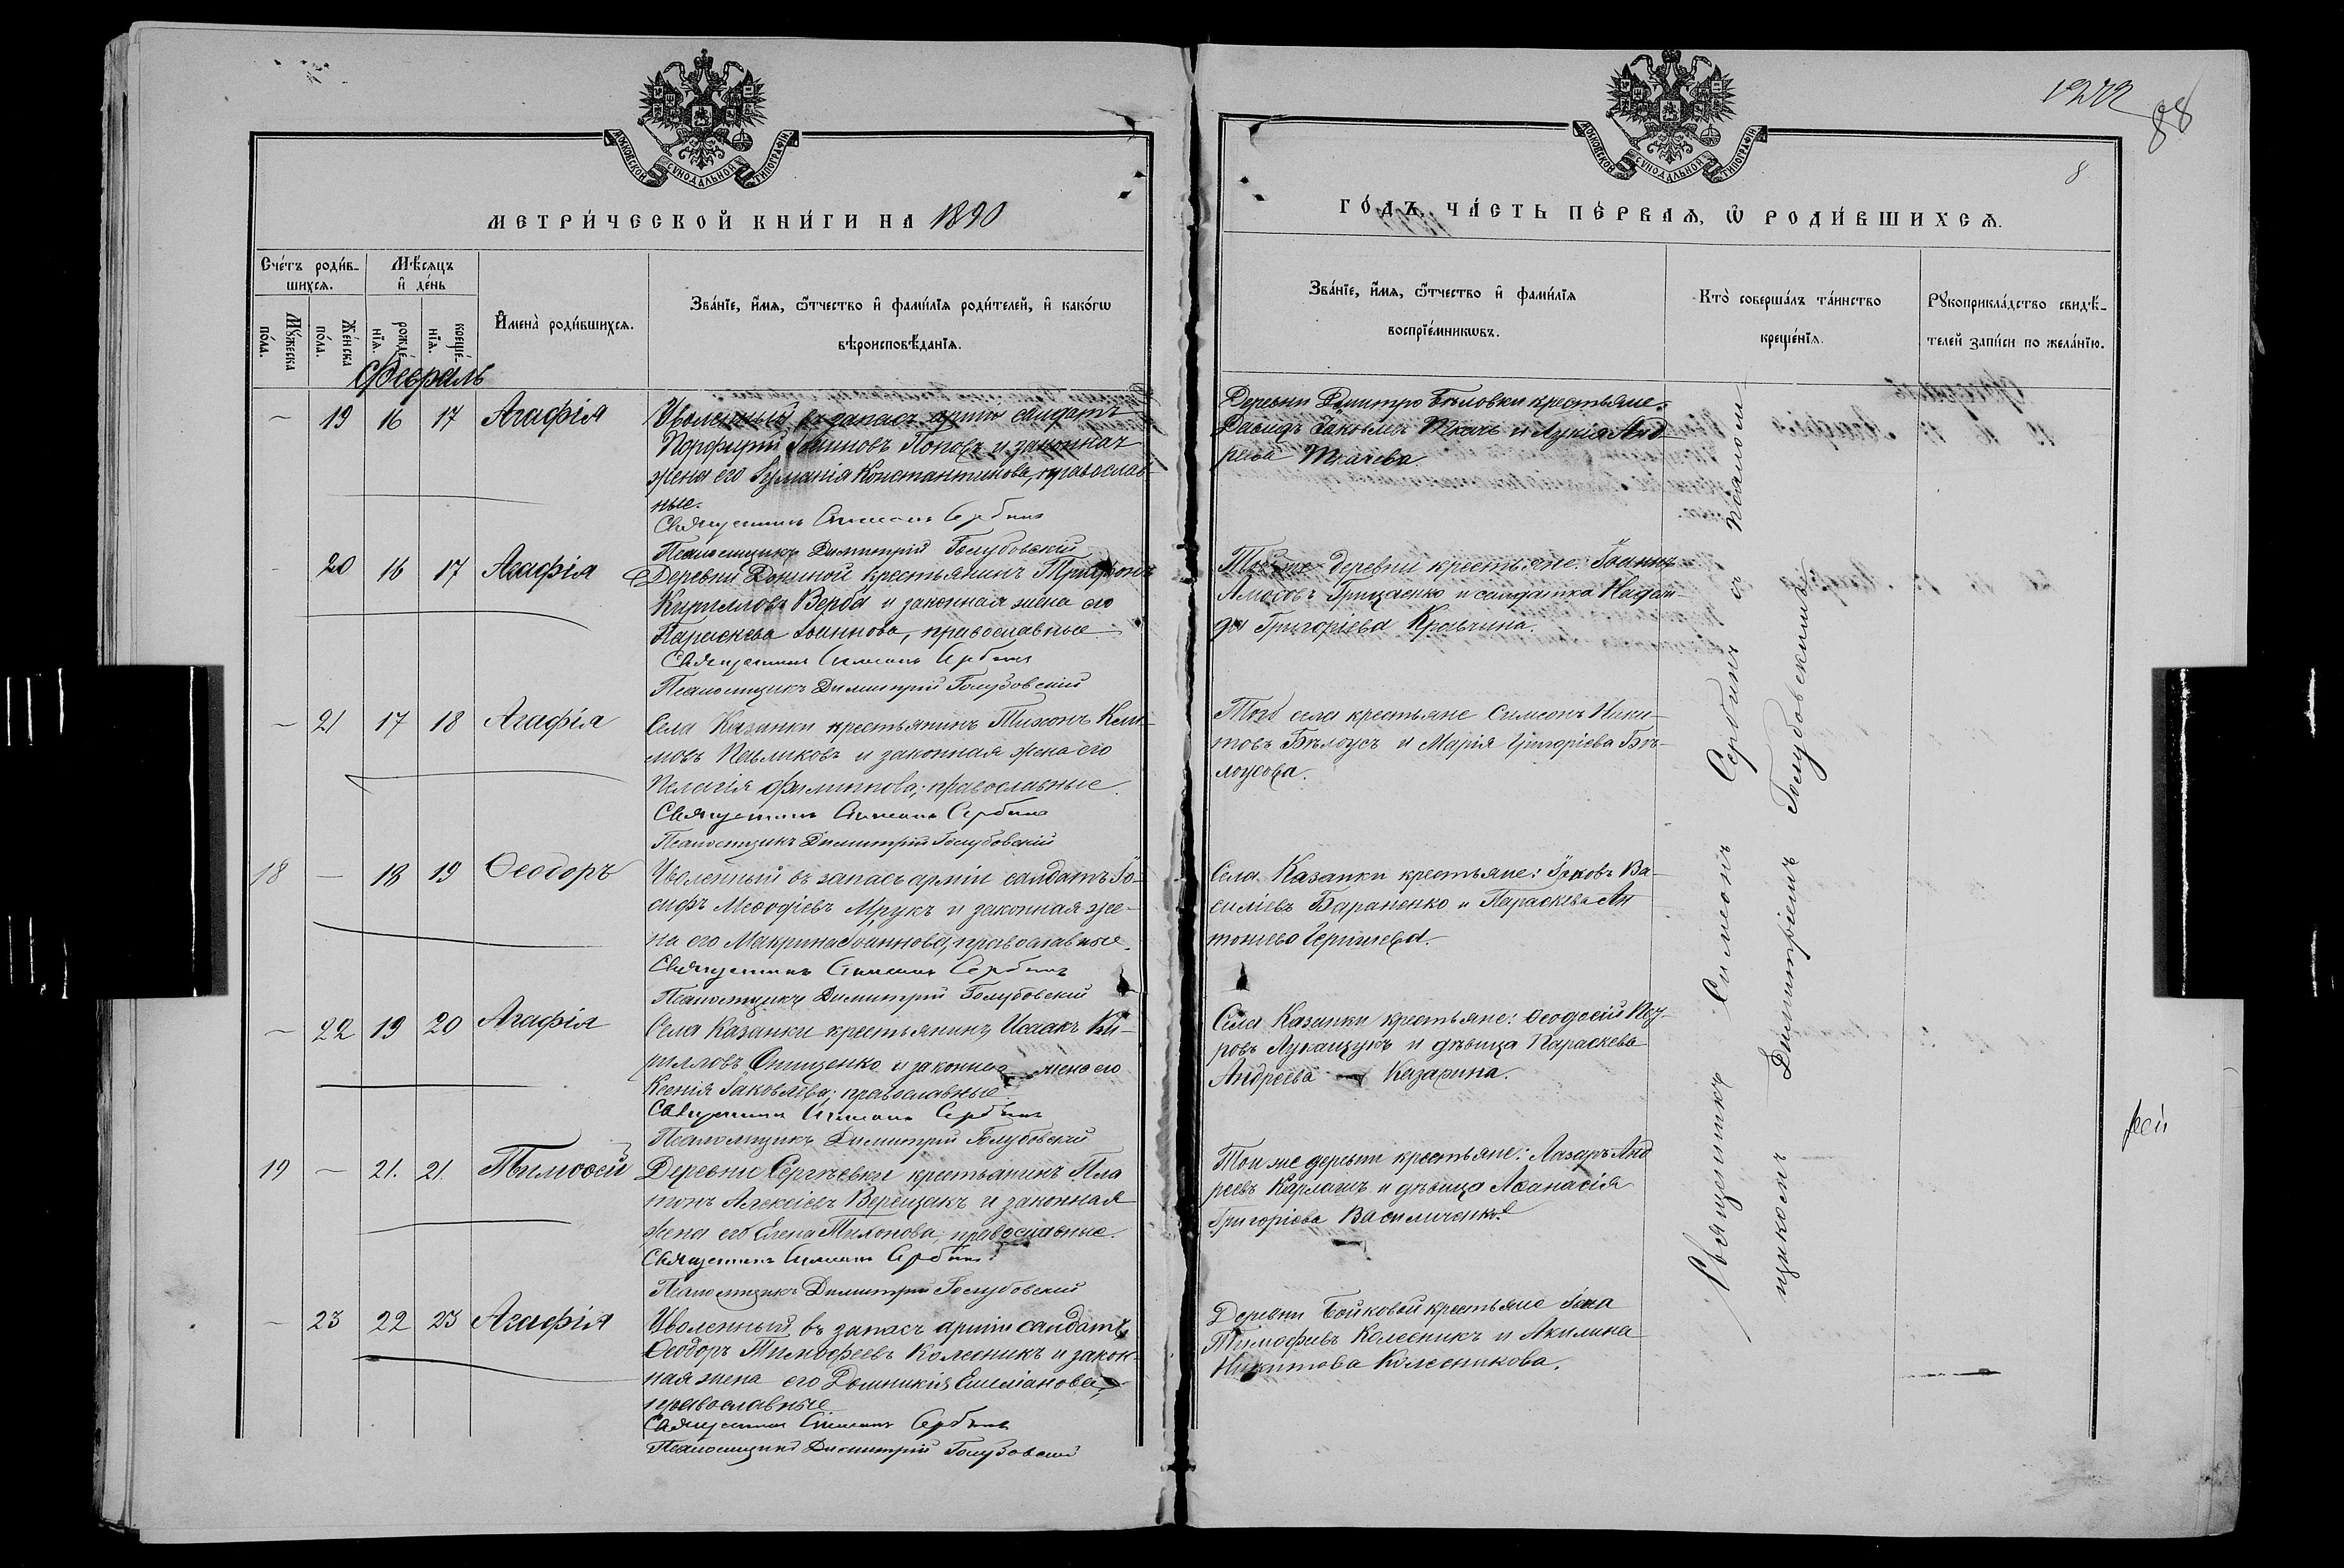 МОСКОВСКОЙ СУНОДАЛЬНОЙ ТИПОГРАФІИ
МЕТРИ́ЧЕСКОЙ КНИ́ГИ НА 1890
Сче́тъ роди́в-
шихсѧ.
Мѣ́сѧцъ
и҆ де́нь
Мꙋ́жеска
по́ла.
Же́нска
по́ла.
рожде́-
нїѧ.
креще́-
нїѧ.
И҆мена̀ роди́вшихсѧ.
Зва́нїе, и҆́мѧ, ѻ҆́тчество и҆ фами́лїѧ роди́телей, и҆ како́гѡ
вѣроисповѣ́данїѧ.
Февраль
– 19 16 17 Агафія
Уволенный въ запасъ арміи солдатъ
Порфирій Іоанновъ Поповъ и законная
жена его Константинова, православ-
ные.
Священникъ Симеонъ Сербинъ
Псаломщикъ Димитрій Голубовскій
20 16 17 Агафія
Деревни крестьянинъ Трифонъ
Кирилловъ Верба и законная жена его
Параскева Іоаннова, православные
Священникъ Симеонъ Сербинъ
Псаломщикъ Димитрій Голубовскій
– 21 17 18 Агафія
Села Казанки крестьянинъ Тихонъ Кли-
мовъ и законная жена его
Пелагія Филиппова; православные.
Священникъ Симеонъ Сербинъ
Псаломщикъ Димитрій Голубовскій
18 – 18 19 Ѳеодоръ
Уволенный въ запасъ арміи солдатъ Іо-
сифъ Меѳодіевъ Мрукъ и законная же-
на его Макрина Іоаннова, православные.
Священникъ Симеонъ Сербинъ
Псаломщикъ Димитрій Голубовскій
– 22 19 20 Агафія
Села Казанки крестьянинъ Исаакъ Ки-
рилловъ Онищенко и законная жена его
Ксенія Іаковлева; православные.
Священникъ Симеонъ Сербинъ
Псаломщикъ Димитрій Голубовскій
19 – 21. 21. Тимоѳей
Деревни Сергѣевки крестьянинъ Пла
тонъ Алексіевъ Верещакъ и законная
жена его Елена Тихонова, православные.
Священникъ Симеонъ Сербинъ
Псаломщикъ Димитрій Голубовскій
– 23 22 23 Агафія
Уволенный въ запасъ арміи солдатъ
Ѳеодоръ Тимофеевъ Колесникъ и закон-
ная жена его Домникія Емеліанова,
православные
Священникъ Симеонъ Сербинъ
Псаломщикъ Димитрій Голубовскій
88
8
МОСКОВСКОЙ СУНОДАЛЬНОЙ ТИПОГРАФІИ
ГО́ДЪ, ЧА́СТЬ ПЕ́РВАѦ, Ѡ҆ РОДИ́ВШИХСѦ.
Зва́нїе, и҆́мѧ, ѻ҆́тчество и҆ фами́лїѧ
воспрїе́мникѡвъ.
Кто̀ соверша́лъ та́инство
креще́нїѧ.
Рꙋкоприкла́дство свидѣ́-
телей за́писи по жела́нїю.
Деревни Дмитро Бѣловки крестьяне.
Давидъ Іаковлевъ Ткачъ и Лукія Анд
реева Ткачева.
Той же деревни крестьяне: Іоаннъ
Амосовъ Грицаенко и солдатка Надеж-
да Григоріева Кравчина.
Того села крестьяне Симеонъ Ники-
товъ Бѣлоусъ и Марія Григоріева Бѣ-
лоусова.
Села Казанки крестьяне: Іаковъ Ва-
силіевъ Бараненко и Параскева Ан
тоніева
Села Казанки крестьяне: Ѳеодосій
Лукащукъ и дѣвица Параскева
Андреева Казарина.
Той же деревни крестьяне: Лазарь Анд
реевъ Карлашъ и дѣвица Аѳанасія
Григоріева Василиченкова
Деревни Бойковой крестьяне Іона
Тимофеевъ Колесникъ и Акилина
Никитова Колесникова.
Священникъ Симеонъ Сербинъ съ псалом-
щикомъ Димитріемъ Голубовскимъ